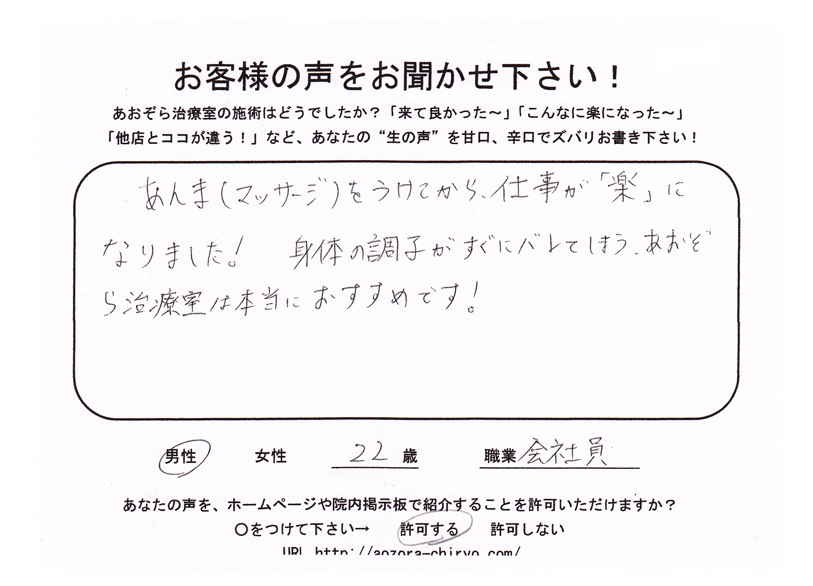 お客様の声をお聞かせ下さい!
あおぞら治療室の施術はどうでしたか?「来て良かった~」「こんなに楽になった~」
「他店とココが違う!」など、あなたの“生の声”を甘口、辛口でズバリお書き下さい!
あんま(マッサージ)をうけてから、仕事が「楽」に
なりました! 身体の調子がすぐにバレてしまう、あおぞ
ら治療室は本当におすすめです!
男性 女性 22歳 職業 会社員
あなたの声を、ホームページや院内掲示板で紹介することを許可いただけますか?
○をつけて下さい→ 許可する 許可しない
URL http://aozora-chiryo.com/